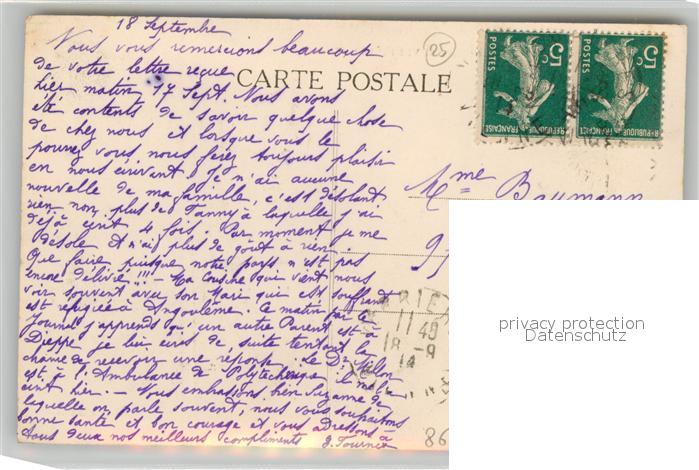 18 Septembre
Nous vous remercions beaucoup
de votre lettre reçue
hier matin 17 Sept. Nous avons
été contents de savoir quelque chose
de chez nous et lorsque vous le
pourrez vous nous ferez toujours plaisir
en nous écrivant. Je n'ai aucune
nouvelle de ma famille, c'est désolant.
rien non plus de Fanny à laquelle j'ai
déjà écrit 4 fois. Par moment je me
désole et n'ai plus de goût à rien.
Que faire puisque notre pays n'est pas
encore délivré !!! - Ma Cousine qui vient nous
voir souvent avec son Mari qui est souffrant
est réfugiée à Angoulême. Ce matin par le
Journal j'apprends qu'un autre Parent est à
Dieppe je lui écris de suite tentant la
chance de recevoir une réponse. Le Dr
est à l'Ambulance de Polytechnique il m'a
écrit hier. - Nous embrassons bien Suzanne de
laquelle on parle souvent, nous vous souhaitons
bonne santé et bon courage et vous adressons à
tous deux nos meilleurs compliments
25
CARTE POSTALE
5c
POSTES
REPUBLIQUE FRANÇAISE
5c
POSTES
REPUBLIQUE FRANÇAISE
Mme Baumann
11 45
18 - 9
14
privacy protection
Datenschutz
86